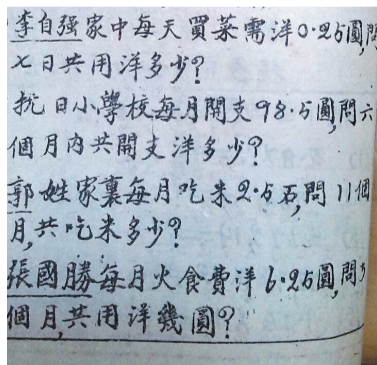 李自强家中每天買菜需洋0·25圓,問
七日共用洋多少?
抗日小學校每月開支98·5圓,問六
個月內共開支洋多少?
郭姓家裏每月吃米2·5石,問11個
月,共吃米多少?
張國勝每月火食費洋6·25圓,問3
個月,共用洋幾圓?